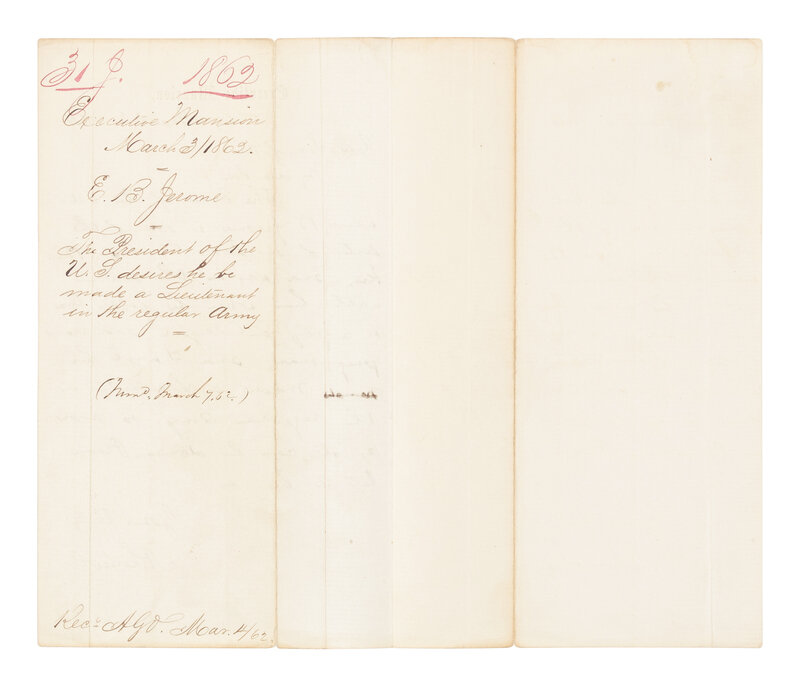 31 J. 1862
Executive Mansion
March 3/1862.
E. B. Jerome
The President of the
U. S. desires he be
made a Lieutenant
in the regular Army
(Nomd. March 7, 62.)
Recd. A.G.O. Mar. 4/62.